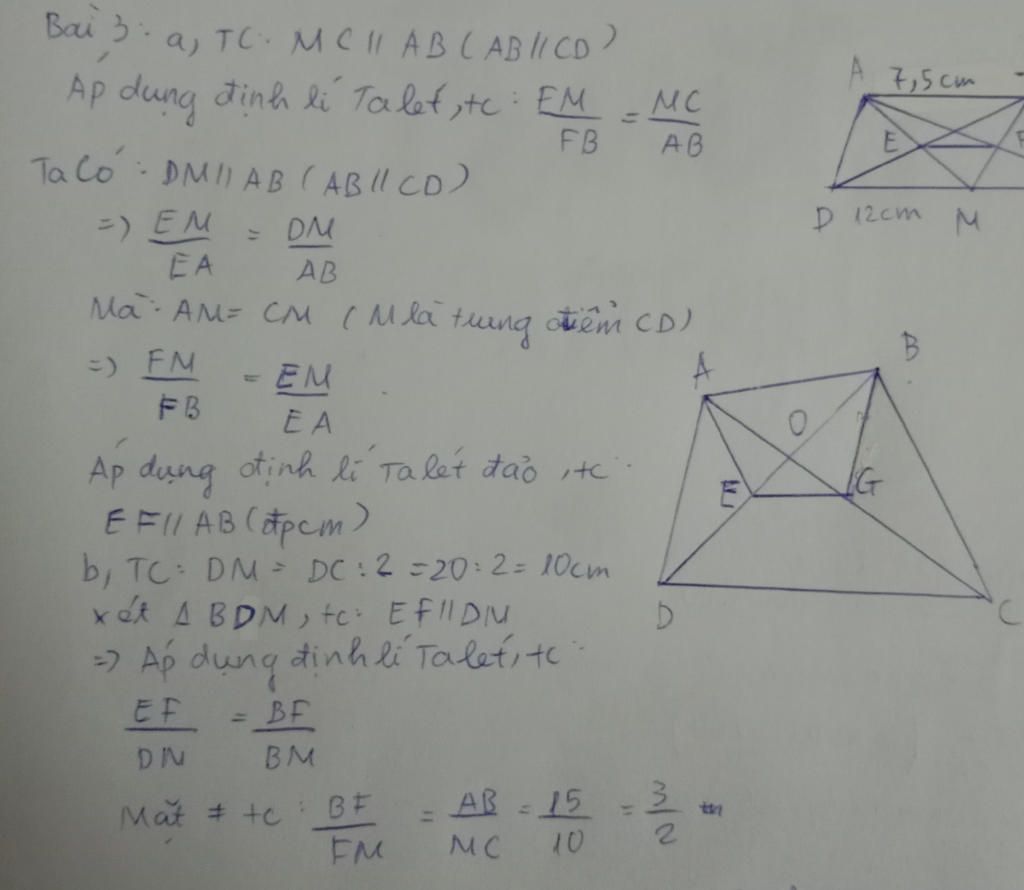 Bài 3: a, TC: MC // AB (AB // CD)
Áp dụng định lí Talét, tc: EM/FB = MC/AB
Ta Có: DM // AB (AB // CD)
=> EM/EA = DM/AB
Mà: AM = CM (M là trung điểm CD)
=> FM/FB = EM/EA
Áp dụng định lí Talét đảo, tc:
EF // AB (đpcm)
b, TC: DM = DC : 2 = 20 : 2 = 10cm
xét Δ BDM, tc: EF // DM
=> Áp dụng định lí Talét, tc:
EF/DM = BF/BM
Mặt ≠ tc: BF/FM = AB/MC = 15/10 = 3/2
A 7,5cm
E F
D 12cm M
A B
O
E G
D C